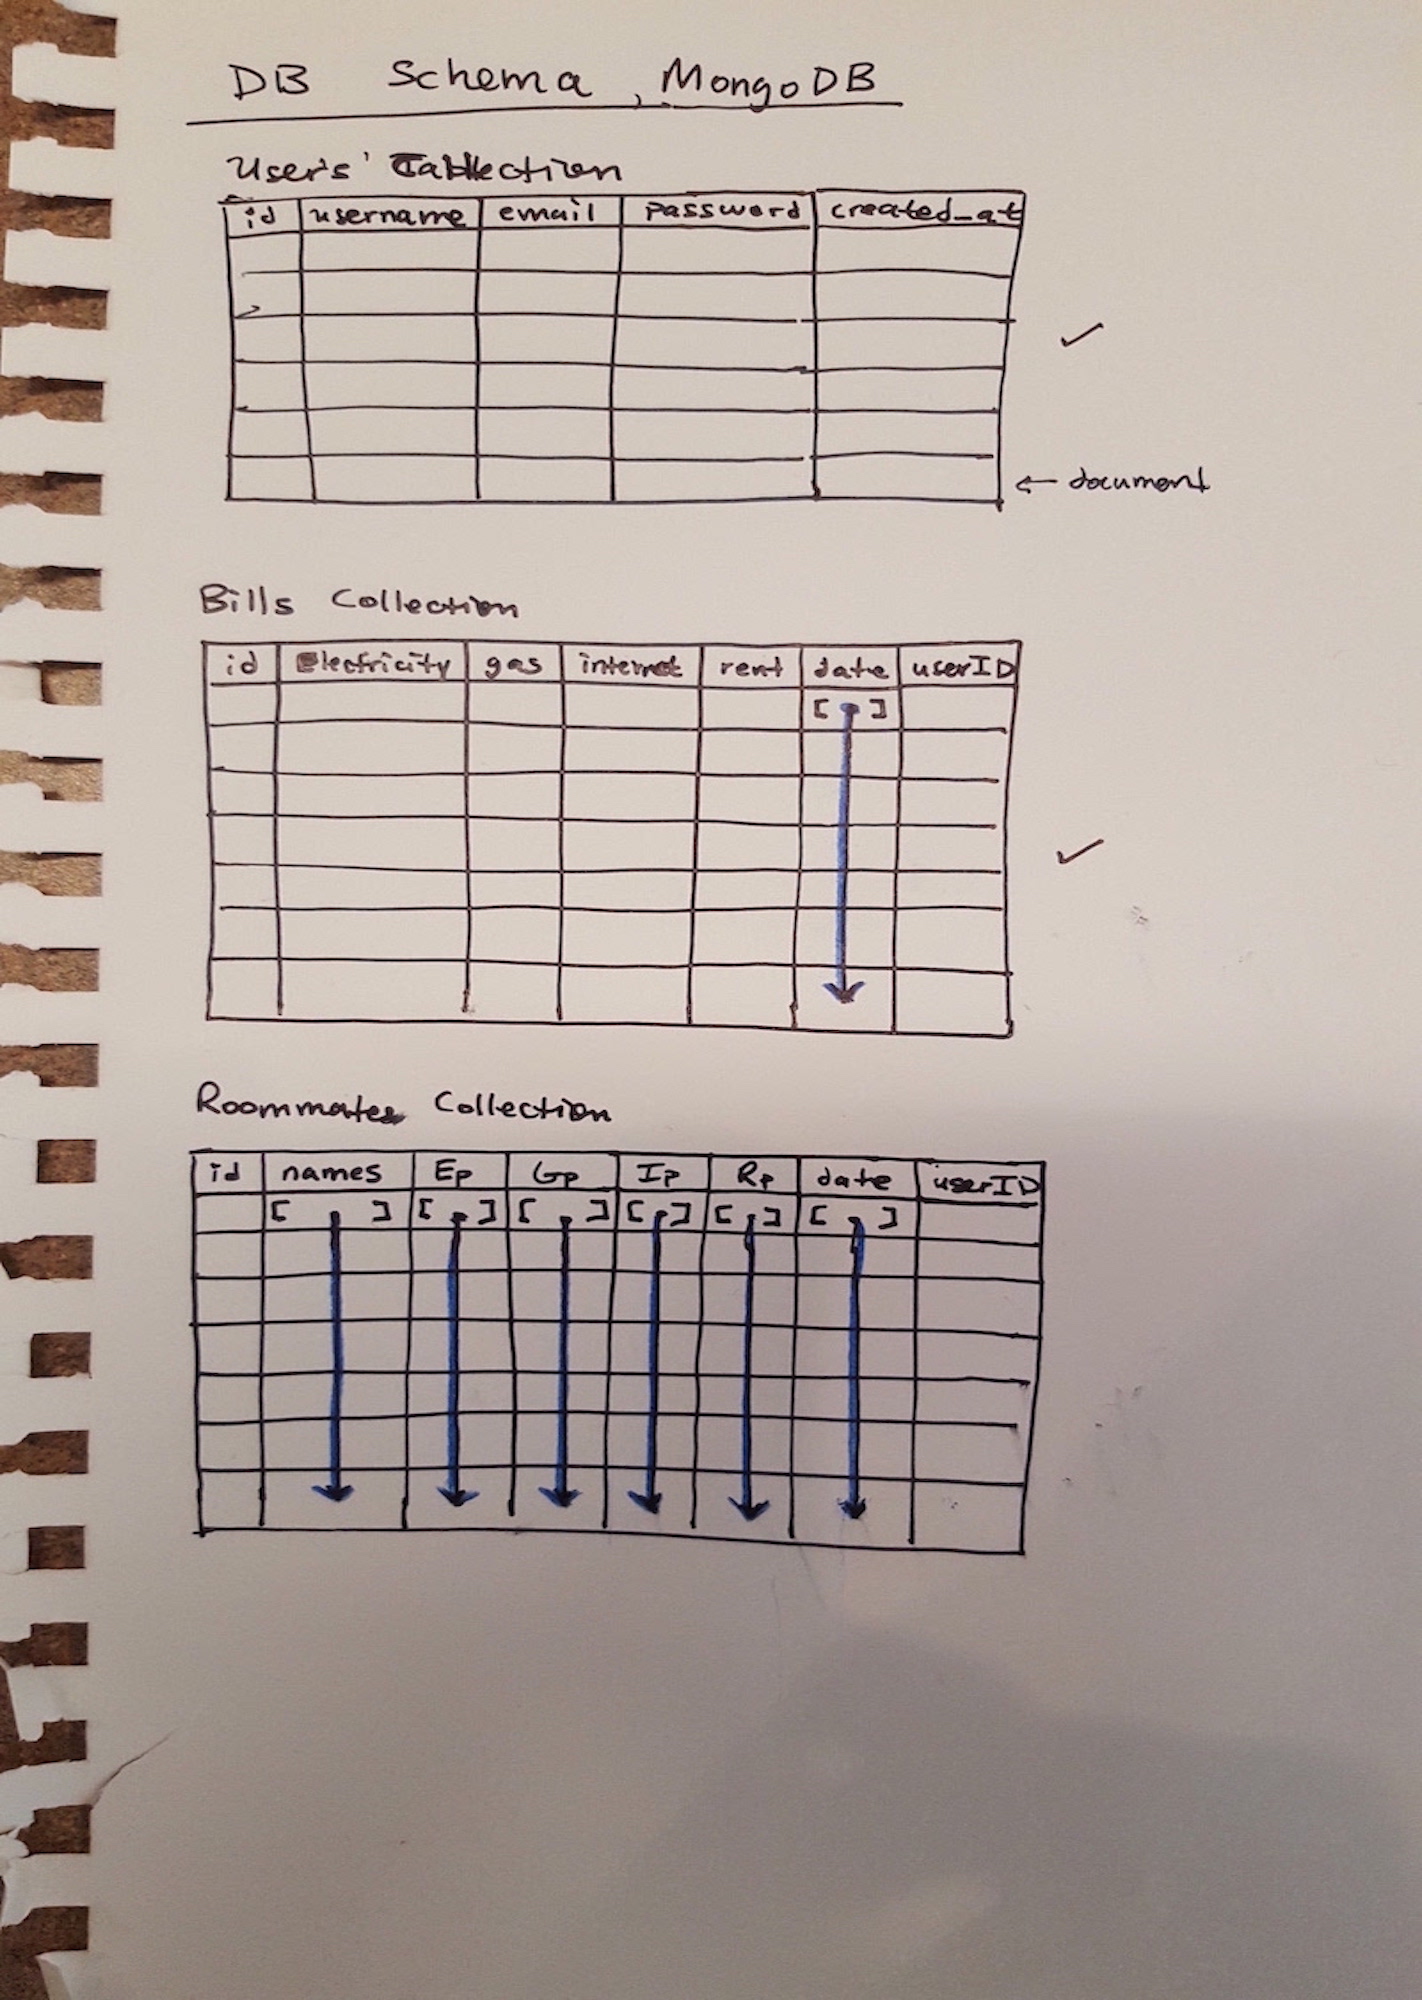 DB Schema, MongoDB
User's' Collection
id username email password created_at
← document
Bills Collection
id Electricity gas internet rent date userID
[ ]
Roommates Collection
id names Ep Gp Ip Rp date userID
[ ] [ ] [ ] [ ] [ ] [ ]